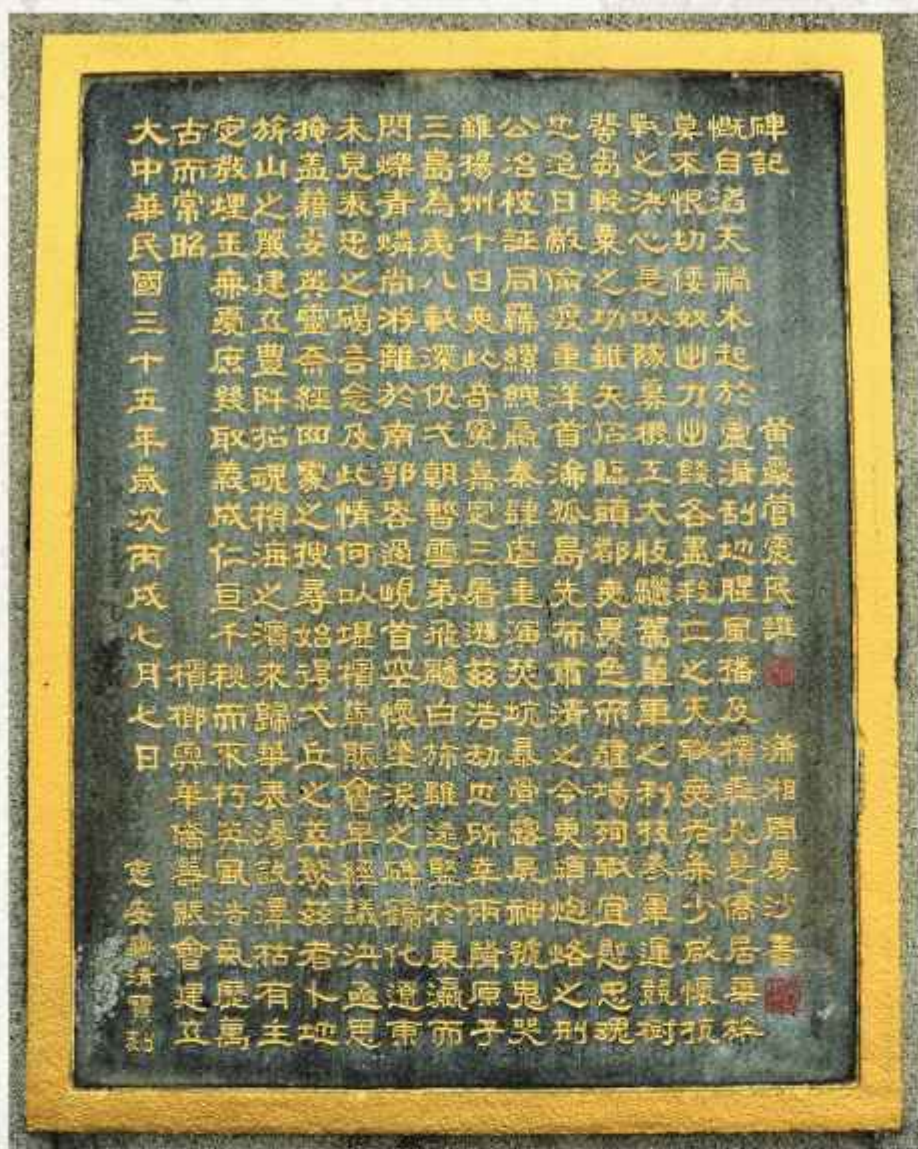 碑記 黃 震民譔 瀟湘周 沙書
慨自滔天禍水起於盧溝刮地腥風播及檳嶼凡是僑居 
莫不恨切倭奴出力出錢各盡救亡之天職 少咸懷抗
戰之決心是以隊募機工大收 駕 軍之利技參軍運競樹
芻輓粟之功雖矢石臨頭都 畏色而疆場殉職宜慰忠魂
日敵偷渡重洋首淪孤島先布肅清之令更頒炮烙之刑
公冶被証同羅縲絏嬴秦肆虐重演焚坑暴骨露 神號鬼哭
雖揚州十日無此奇冤嘉定三屠遜茲浩劫 所幸兩 原子
三島為夷八載深仇弌朝暫雪弟飛颺白旂雖遠豎於東瀛而
閃爍青燐尚游離於南郭客過峴首空懷墮淚之碑鶴化遼東
未見表忠之碣言念及此情何以堪檳嶼賑會早經議決亟思
掩盖藉妥英靈奈經四處之搜尋始得弌丘之 茲者卜地
旂山之麓建立豐阡招魂檳海之濱來歸華表 澤枯有主
定教埋玉無憂庶幾取義成仁亘千秋而不朽英風浩氣歷萬
古而常昭 檳榔嶼華僑籌賑會建立
大中華民國三十五年歲次丙戌七月七日 惠安蔣清露刻